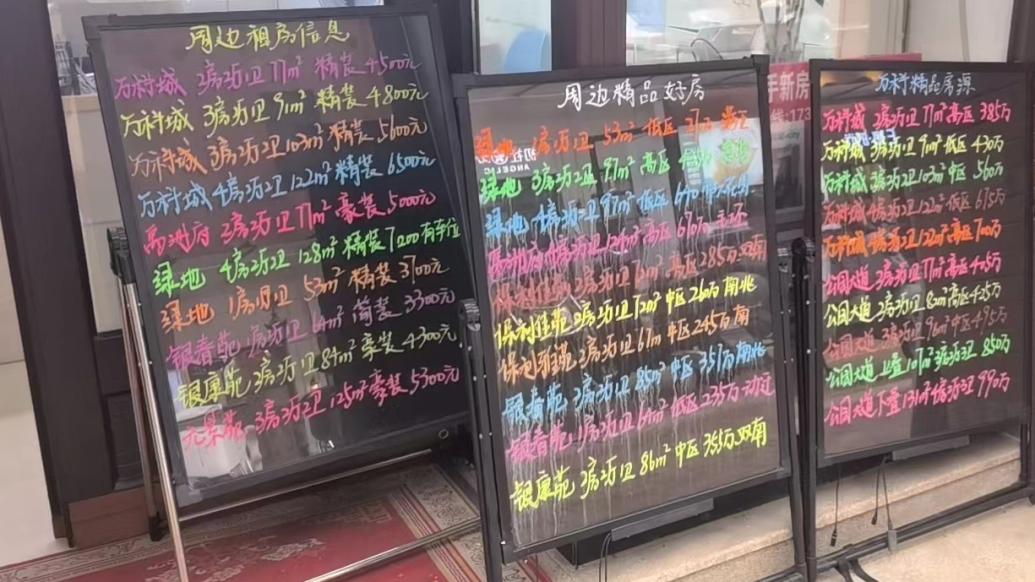 周边租房信息
万科城 2房2厅1卫 77m² 精装 4500元
万科城 3房2厅1卫 91m² 精装 4800元
万科城 3房2厅2卫 103m² 精装 5600元
万科城 4房2厅2卫 122m² 精装 6500元
2房2厅1卫 77m² 豪装 5000元
绿地 4房2厅2卫 128m² 精装 7200 有车位
绿地 1房1厅1卫 53m² 精装 3700元
银春苑 1房2厅1卫 64m² 简装 3300元
银康苑 3房2厅1卫 84m² 豪装 4300元
3房2厅2卫 125m² 豪装 5300元
周边精品好房
绿地 1房 1卫 53m² 低区
绿地 3房2厅2卫 97m² 高区
绿地 4房2厅2卫 97m² 低区 670
4房2厅2卫 124m² 高区 670万
保利佳苑 2房2厅1卫 高区 285万 双南
保利佳苑 2房2厅1卫 72m² 中区 260万 南北
保利雅苑 2房2厅1卫 67m² 中区 245万 南
银春苑 2房2厅1卫 85m² 中区 357万 南北
银春苑 1房2厅1卫 64m² 低区 235万
银康苑 3房2厅1卫 86m² 中区 355万 双南
万科精品房源
万科城 2房2厅1卫 77m² 高区 385万
万科城 3房2厅1卫 91m² 低区 430万
万科城 3房2厅2卫 103m² 中区 560万
万科城 4房2厅2卫 122m² 低区 675万
万科城 4房2厅2卫 122m² 高区 700万
公园大道 2房2厅1卫 77m² 高区 405万
公园大道 2房2厅1卫 82m² 高区 425万
公园大道 3房2厅1卫 96m² 中区 495万
公园大道 上叠 107m² 3房2厅3卫 850万
公园大道 下叠 131m² 4房2厅3卫 990万
手新房
173
ANGELIC